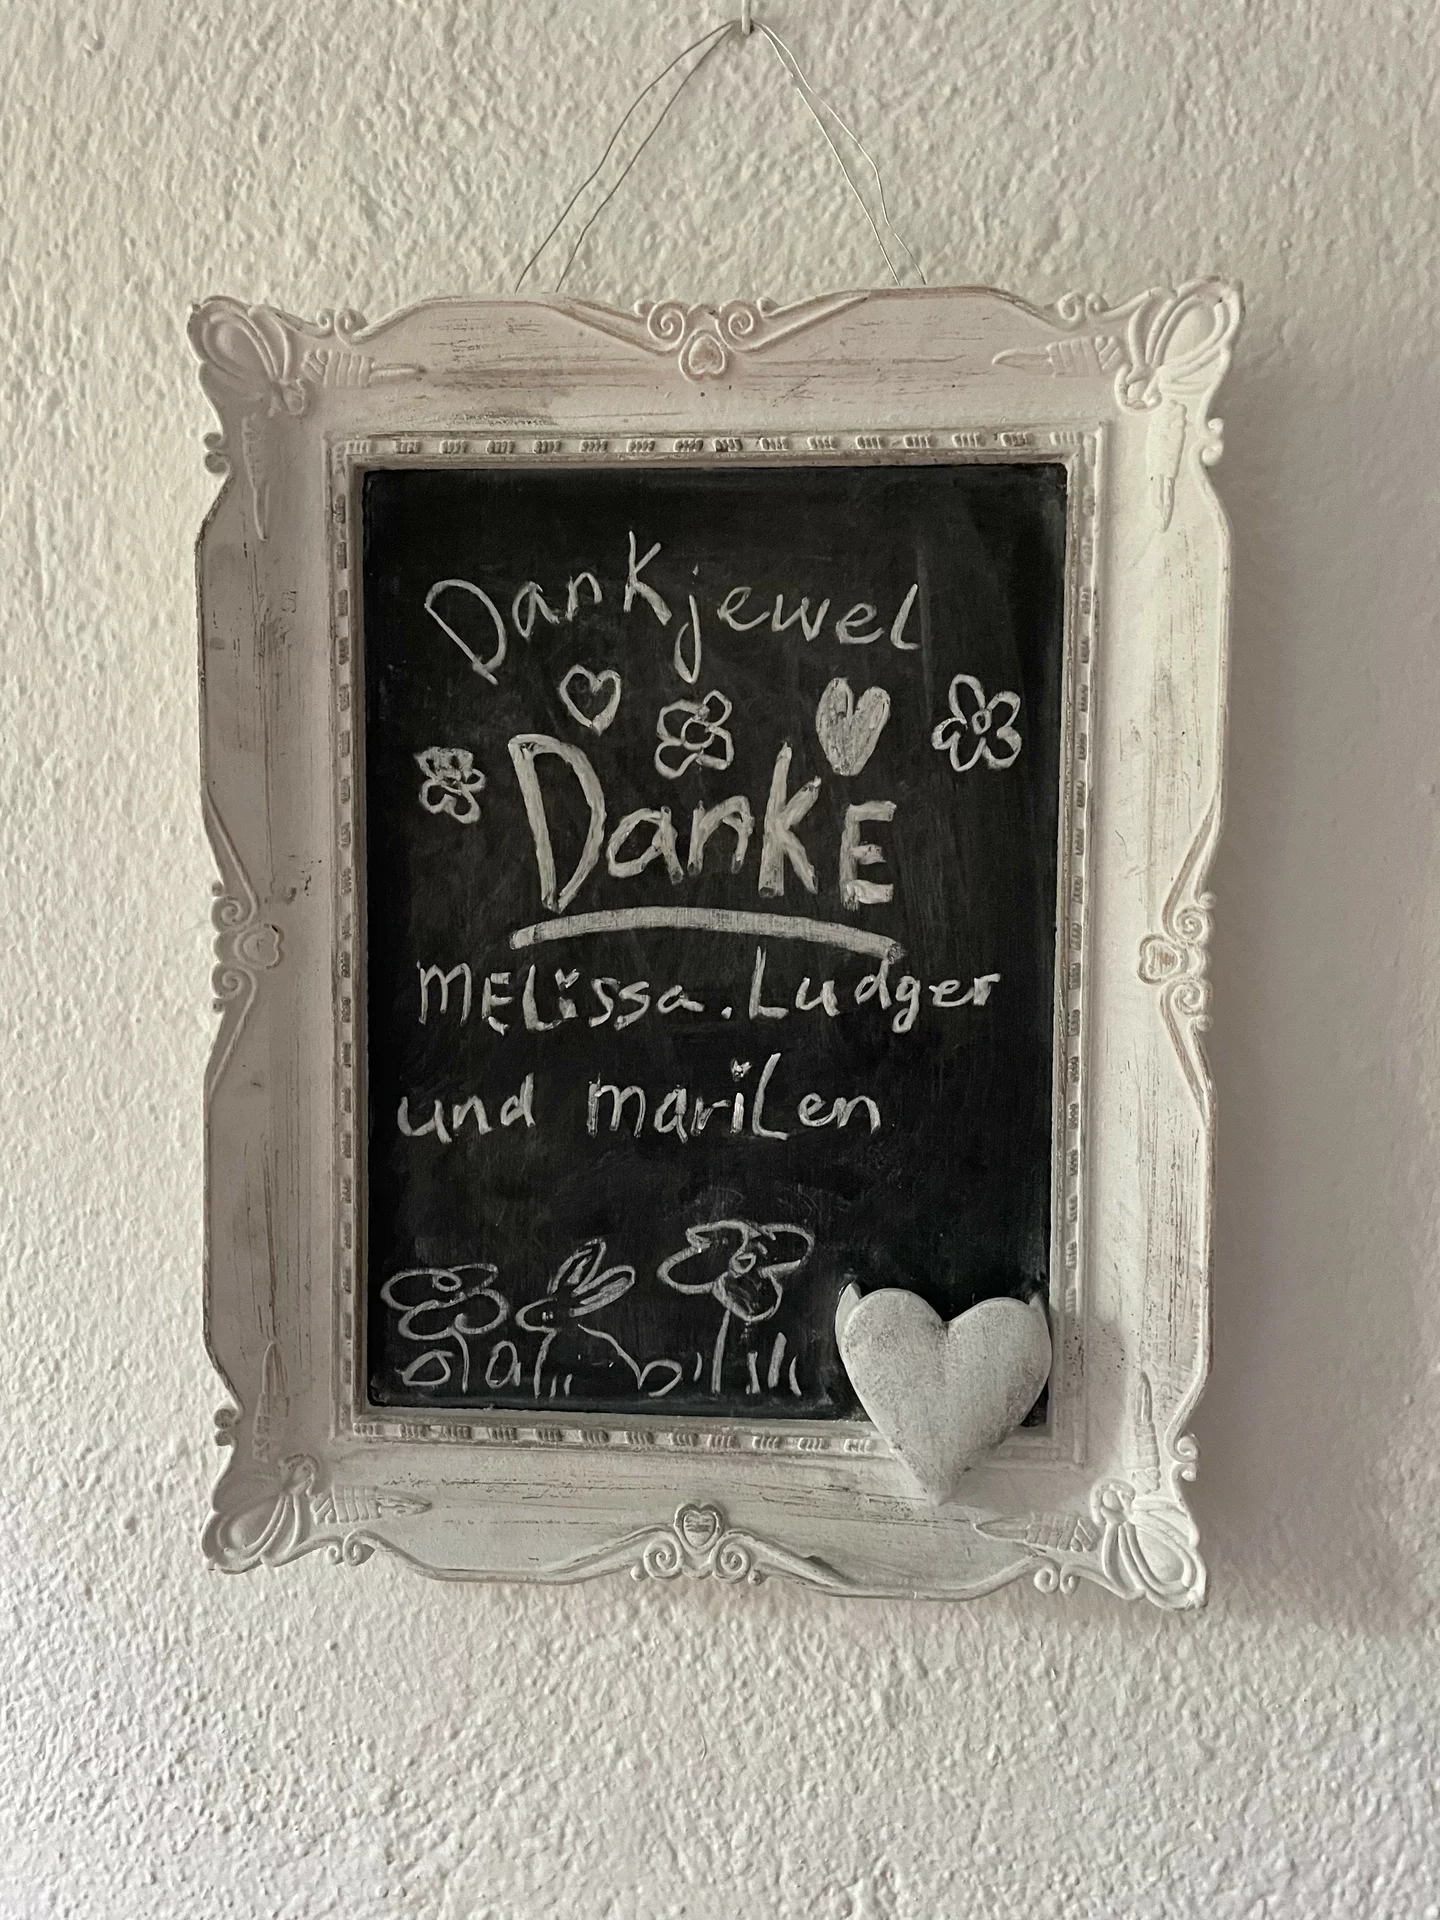 Dankjewel
DankE
MELissa. Ludger
und mariLen